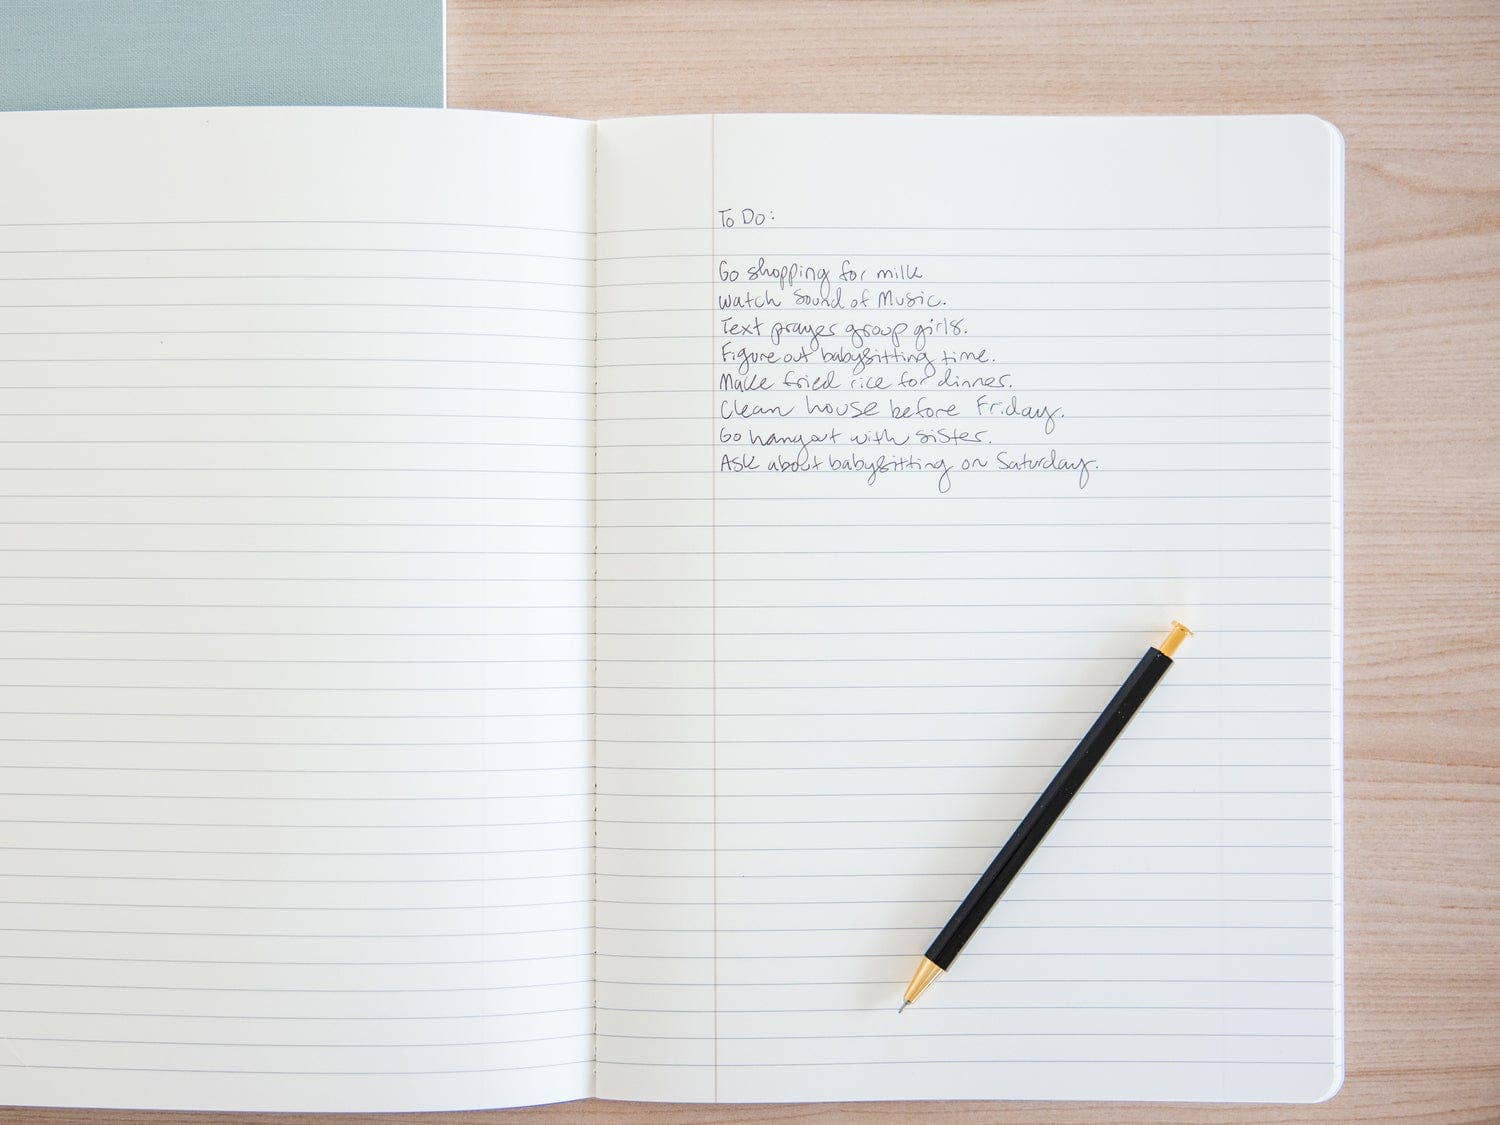 To Do:
Go shopping for milk
Watch Sound of Music.
Text prayer group girls.
Figure out babysitting time.
Make fried rice for dinner.
Clean house before Friday.
Go hangout with sister.
Ask about babysitting on Saturday.